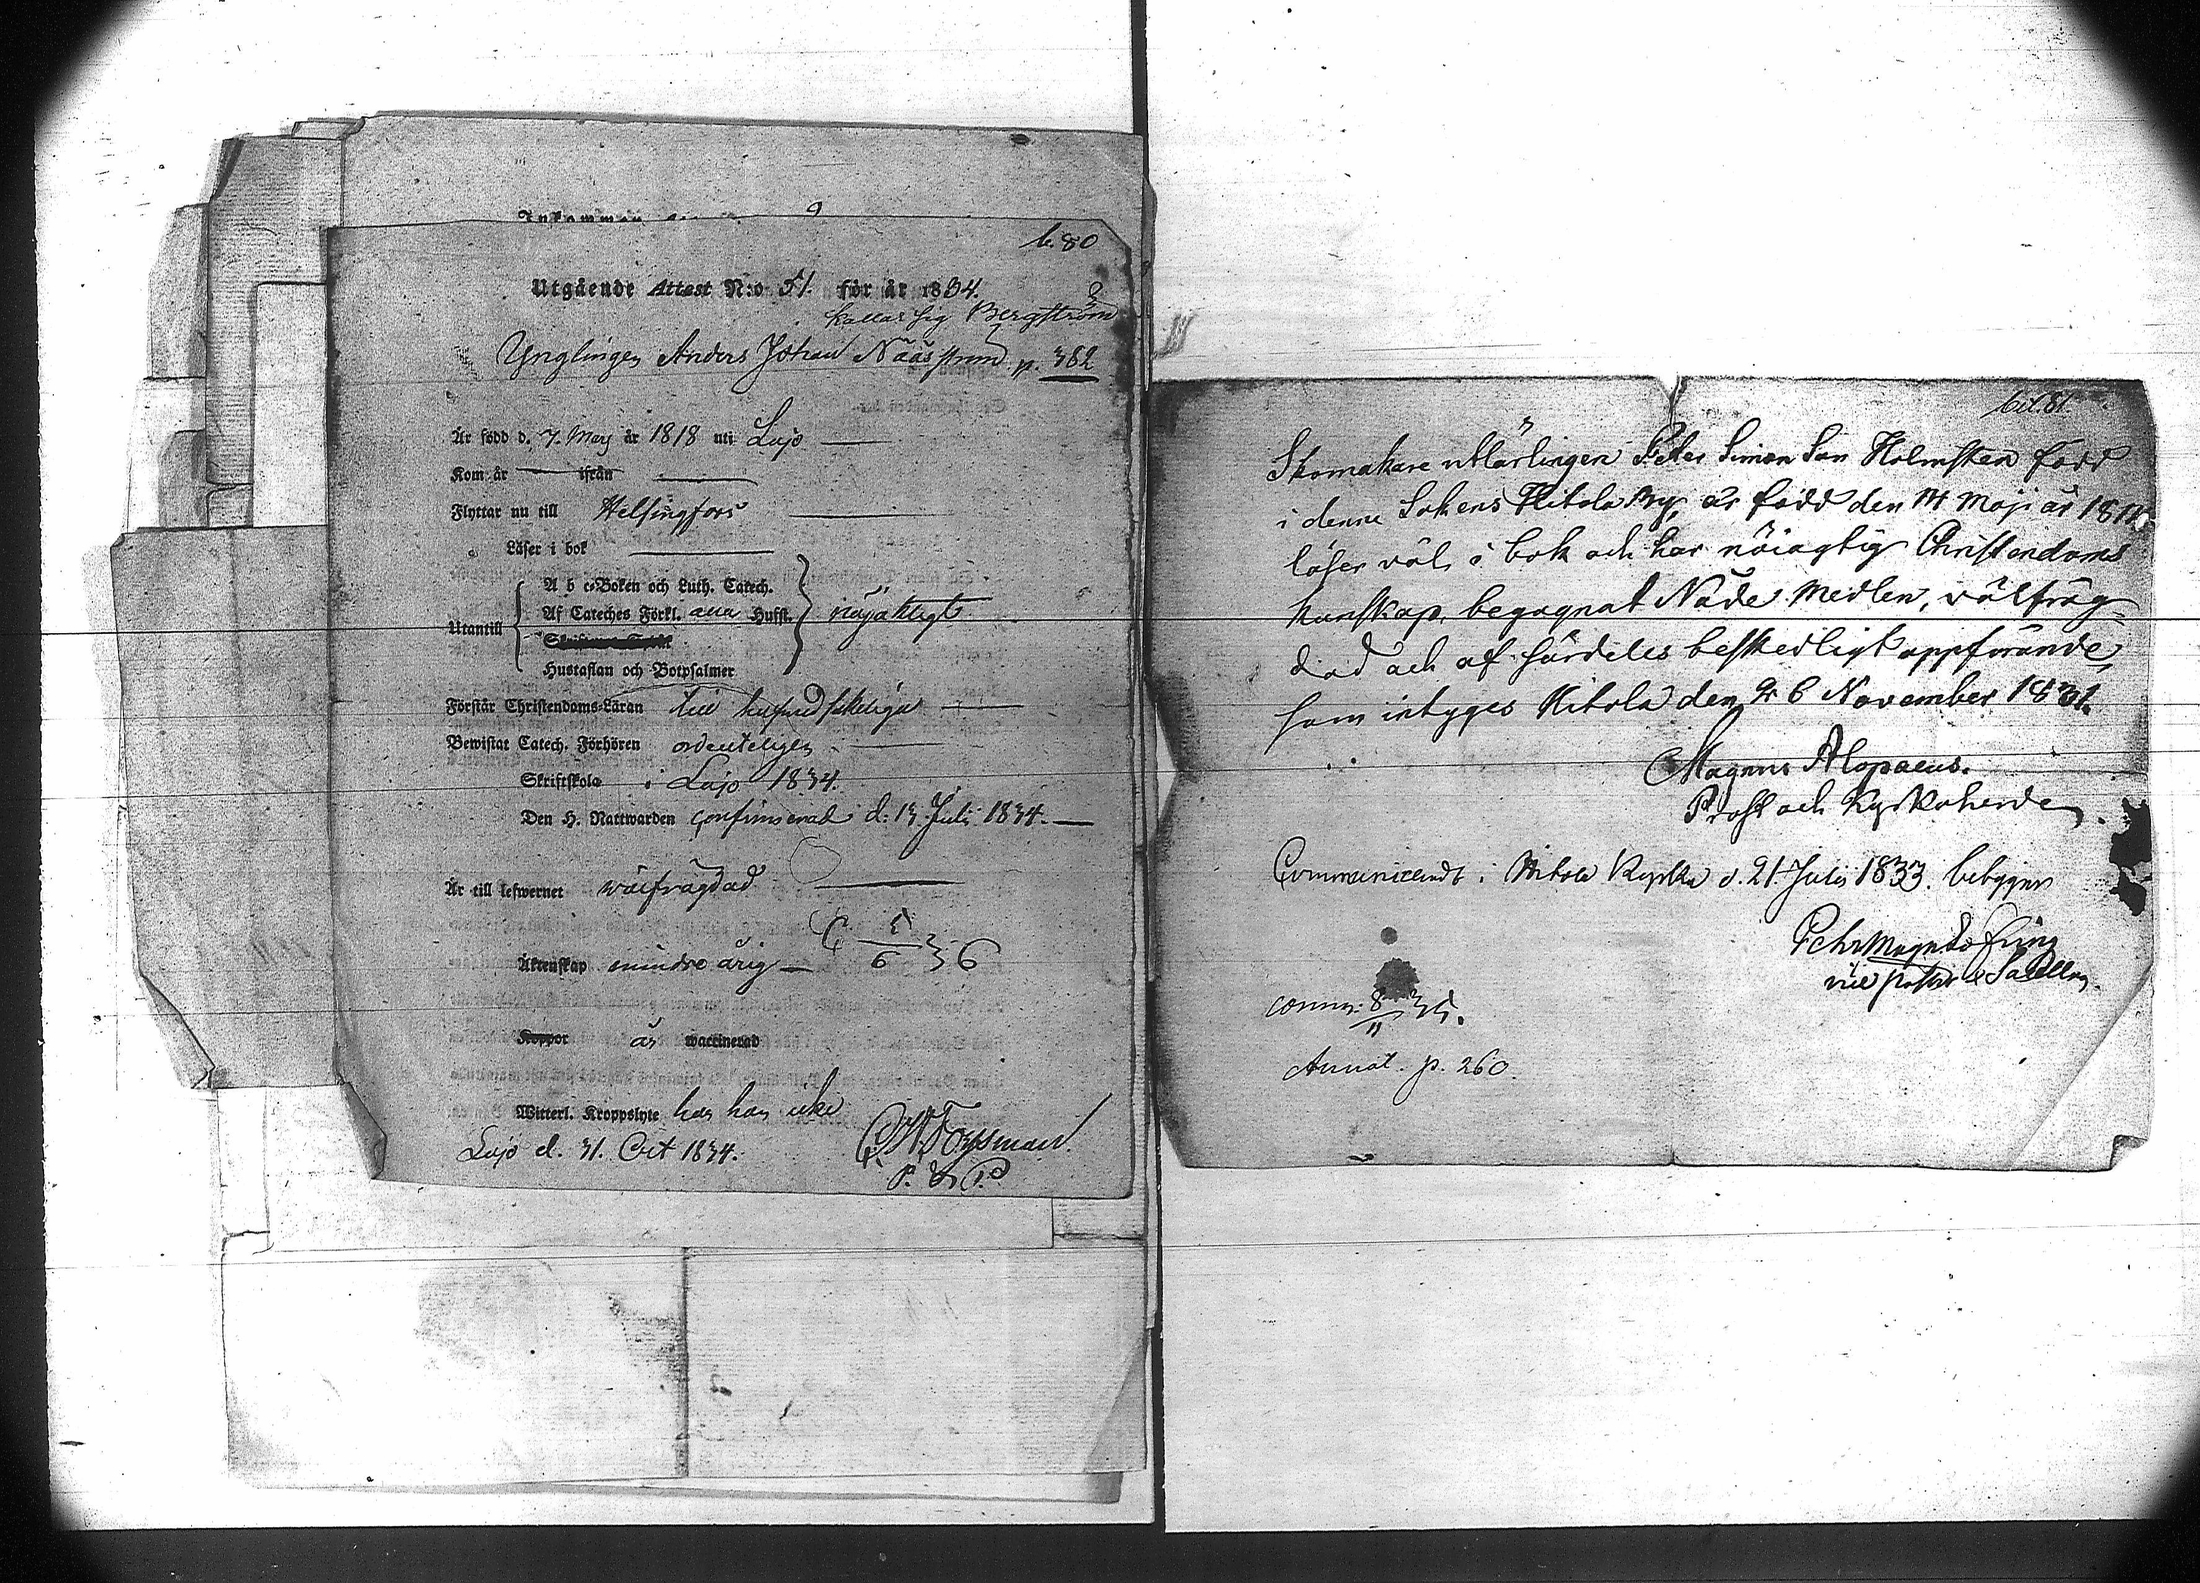 b. 80
Utgående Attest N:o 51. för år 1834.
kallar sig Bergström
Ynglingen Anders Johan Nääsström p. 382
Är född d. 7 Maj år 1818 uti Lojo
Kom år ifrån
Flyttar nu till Helsingfors
Läser i bok
Utantill
A b c-Boken och Luth. Catech.
Af Cateches Förkl. alla Hufst. nöjaktligt
Hustaflan och Botpsalmer
Förstår Christendoms-Läran till hufvudsakeliga
Bewistat Catech. Förhören ordenteligen
Skriftskola i Lojo 1834.
Den H. Nattwarden confirmerad d. 13 Juli 1834.
Är till lefwernet wälfrägdad
C 5/6 36
Äktenskap mindre årig
Koppor är waccinerad
Witterl. Kroppslyte har han icke
Lojo d. 31. Oct 1834.
Forsman.
bil. 81
Skomakare utlärlingen Peter Simon Son Holmsten född
i denne Sokens Hitola By, är född den 14 Maji år
läser väl i bok och har nöiagtig Christendoms
kunskap, begagnat Nåde Medlen, välfräg=
dad och af särdeles beskedligt uppförande,
som intyges Hitola den 26 November 1831.
Magnus Alopaeus.
Prost och Kyrkoherde
Communicerat i Hitola Kyrka d. 21. Julii 1833. betygar
Pehr Magn.
vice pastor
comm: 8/11 35.
Annot. p. 260.